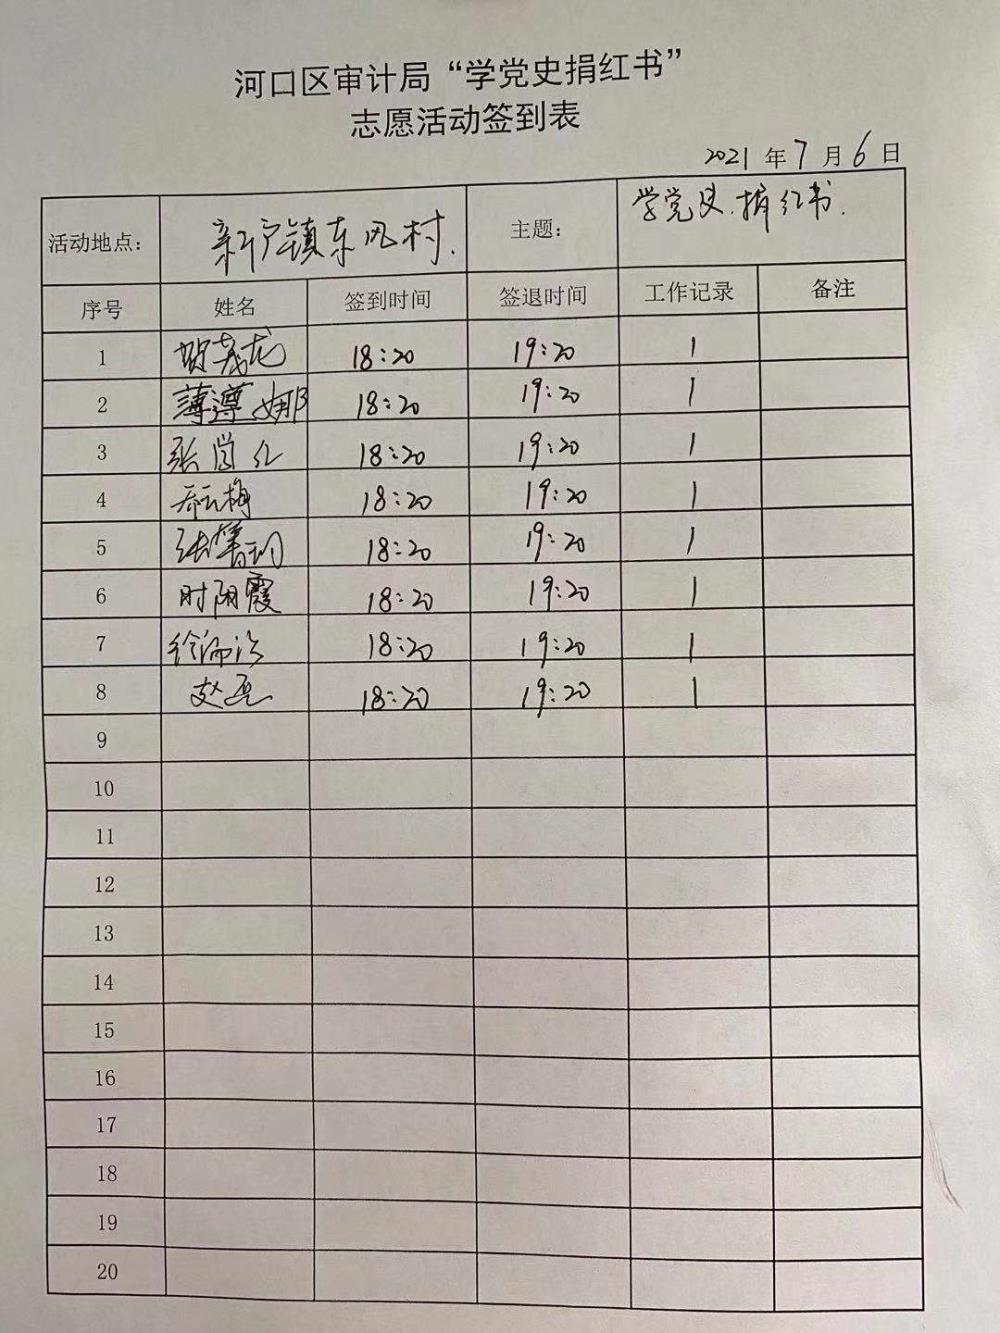 河口区审计局“学党史捐红书”
志愿活动签到表
2021 年 7 月 6 日
活动地点: 新户镇东风村. 主题: 学党史.捐红书.
序号 姓名 签到时间 签退时间 工作记录 备注
1 贺茂龙 18:20 19:20 1
2 薄遵娜 18:20 19:20 1
3 张 18:20 19:20 1
4 梅 18:20 19:20 1
5 张 18:20 19:20 1
6 时阴霞 18:20 19:20 1
7 徐 18:20 19:20 1
8 赵 18:20 19:20 1
9
10
11
12
13
14
15
16
17
18
19
20